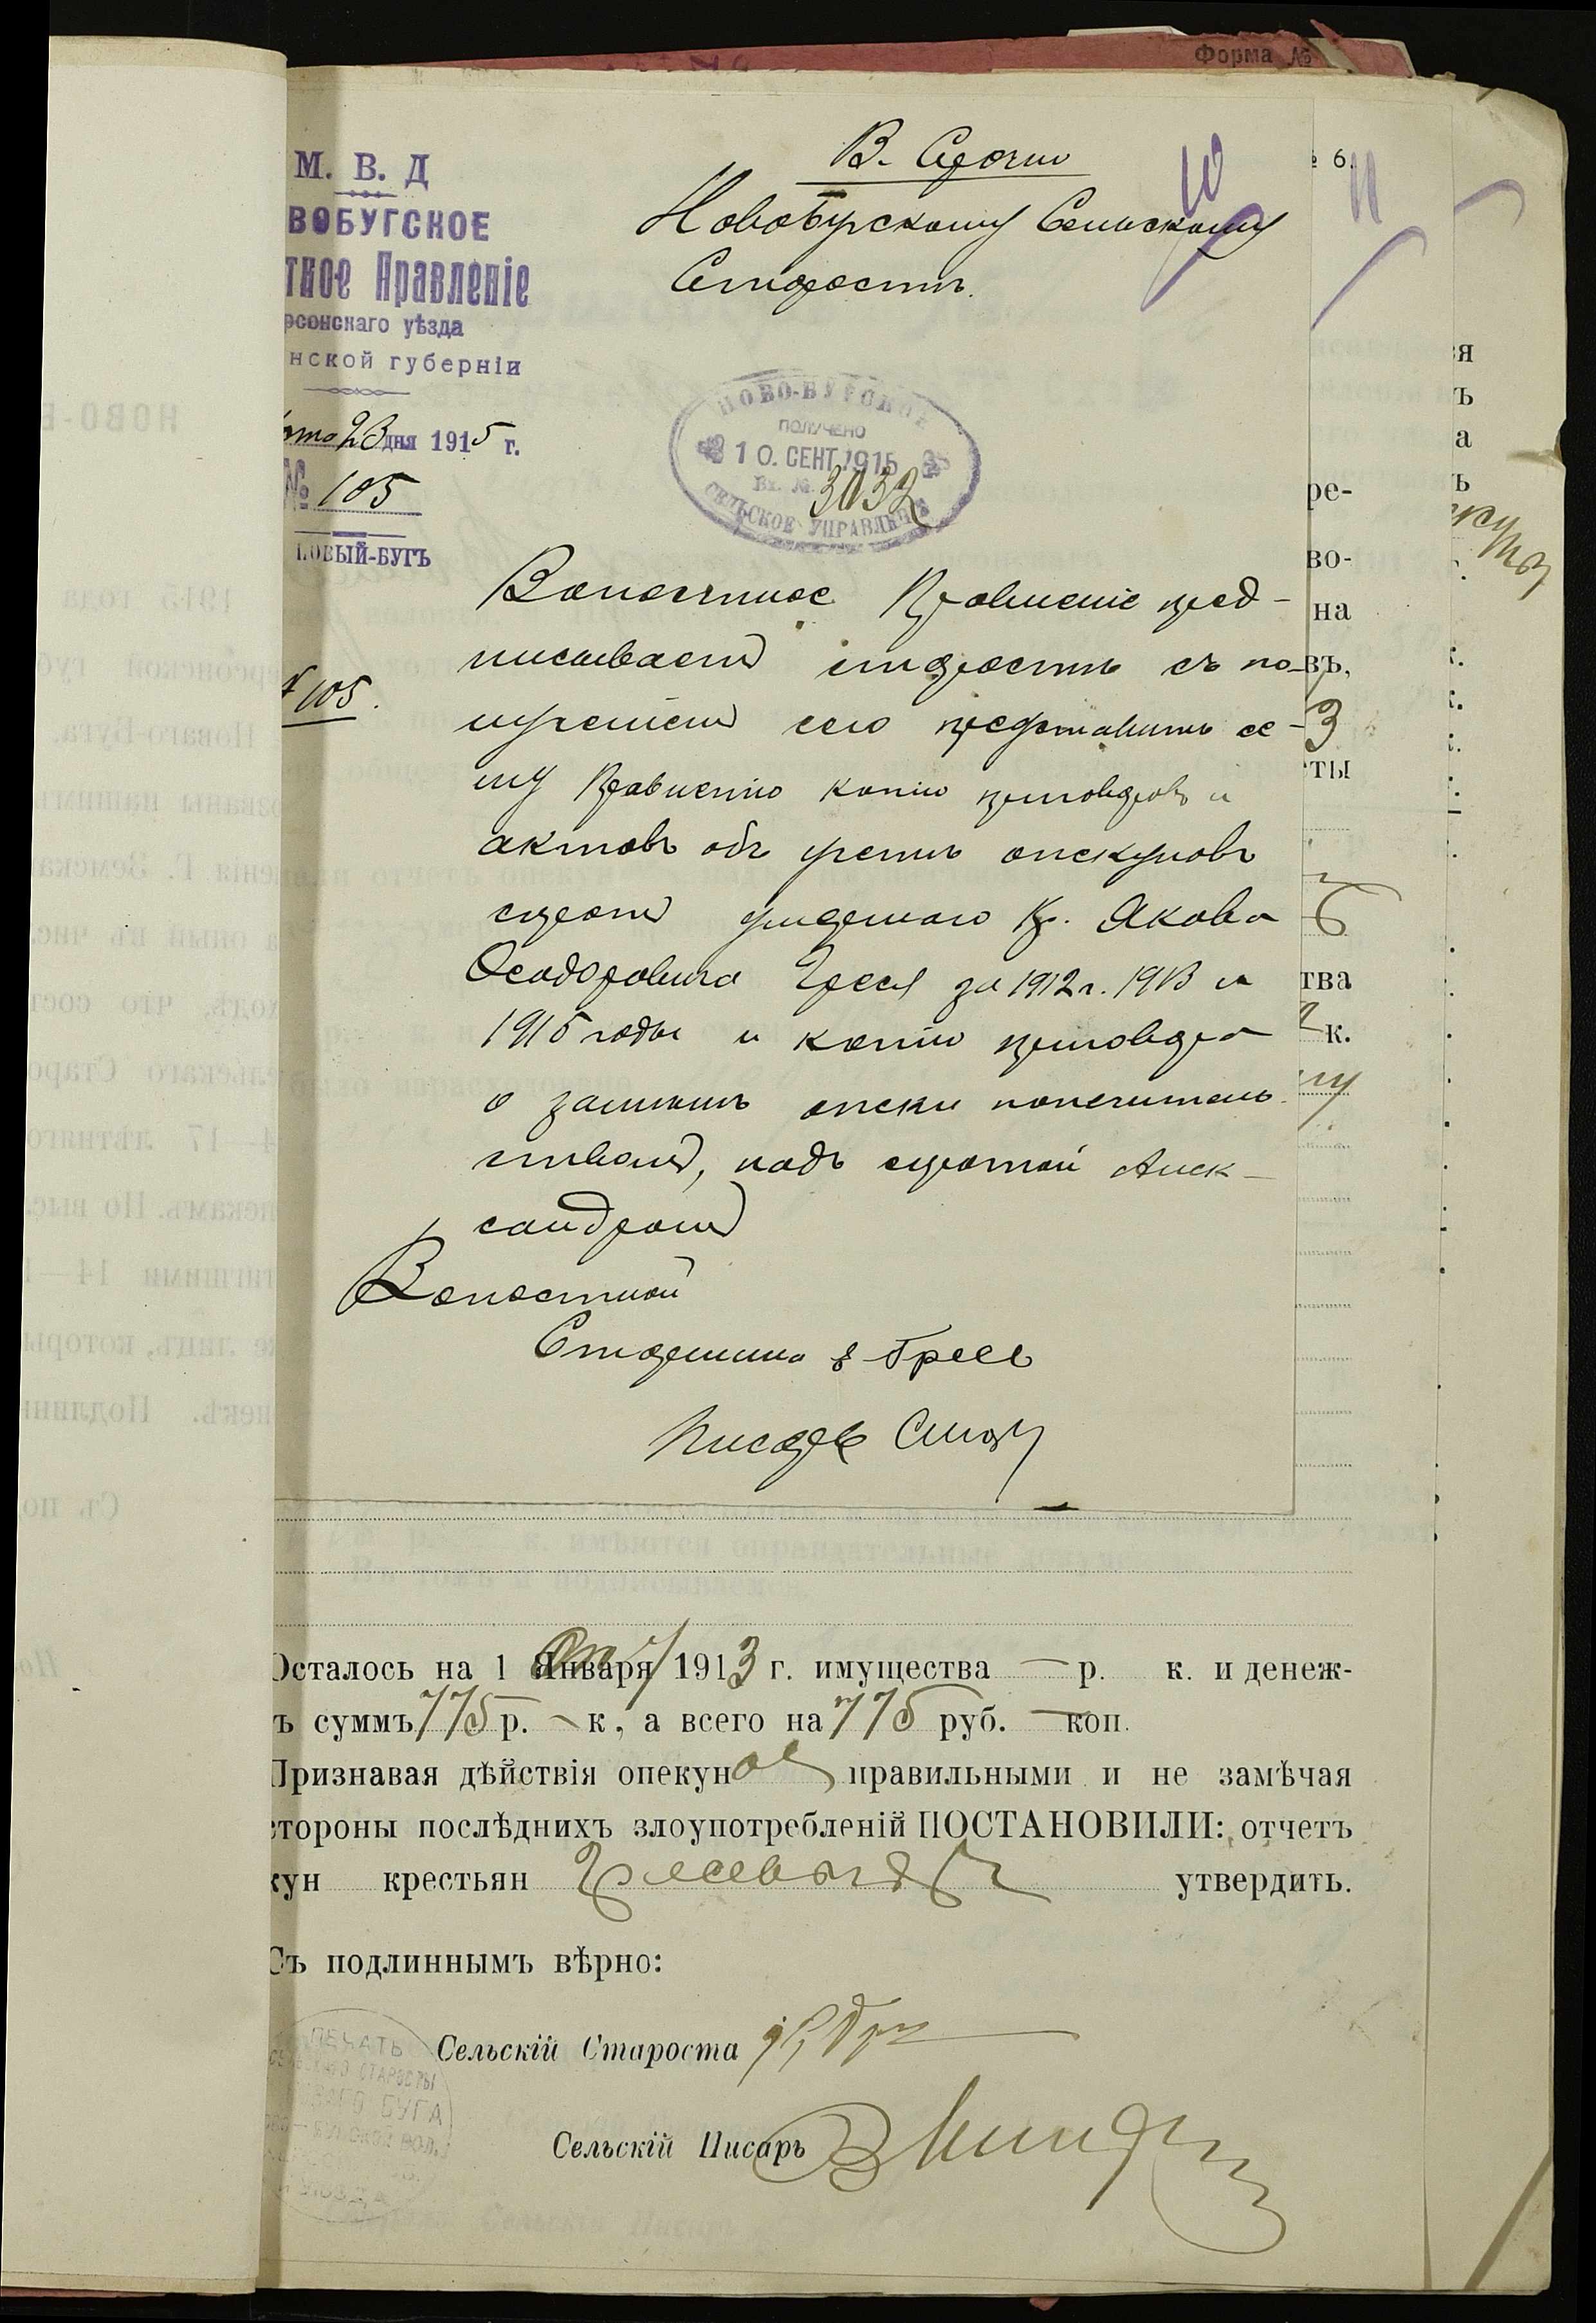 Форма №
М. В. Д
ВОБУГСКОЕ
тное Правленіе
рсонскаго уѣзда
нской губерніи
23 дня 1915 г.
№ 105
НОВЫЙ-БУГЪ
В. Срочно
Новобугскому Сельскому
Старостѣ.
10
№ 6.
11
НОВО-БУГСКОЕ
ПОЛУЧЕНО
10. СЕНТ. 1915
Вх. № 3032
СЕЛЬСКОЕ УПРАВЛЕНІЕ
№ 105.
Волостное Правленіе пред-
писываетъ старостѣ съ по-
лученіемъ сего представить се-
му Правленію копіи приговоровъ и
актовъ объ учетѣ опекуновъ
сиротъ умершаго Кр. Якова
Феодоровича Гресся за 1912 г. 1913 и
1915 годы и копію приговора
о замѣнѣ опеки попечитель-
ствомъ, надъ сиротой Алек-
сандромъ
Волостной
Старшина Гресь
Писарь
ре-
во-
на
въ,
3
ты
тва
к.
я
ъ
а
ъ
Осталось на 1 Января 1913 г. имущества — р. к. и денеж-
ъ суммъ 775 р. — к, а всего на 775 руб. — коп.
Признавая дѣйствія опекуновъ правильными и не замѣчая
стороны послѣднихъ злоупотребленій ПОСТАНОВИЛИ: отчетъ
кун крестьян утвердить.
Съ подлиннымъ вѣрно:
Сельскій Староста
Сельскій Писарь
ПЕЧАТЬ
СТАРОСТЫ
БУГА